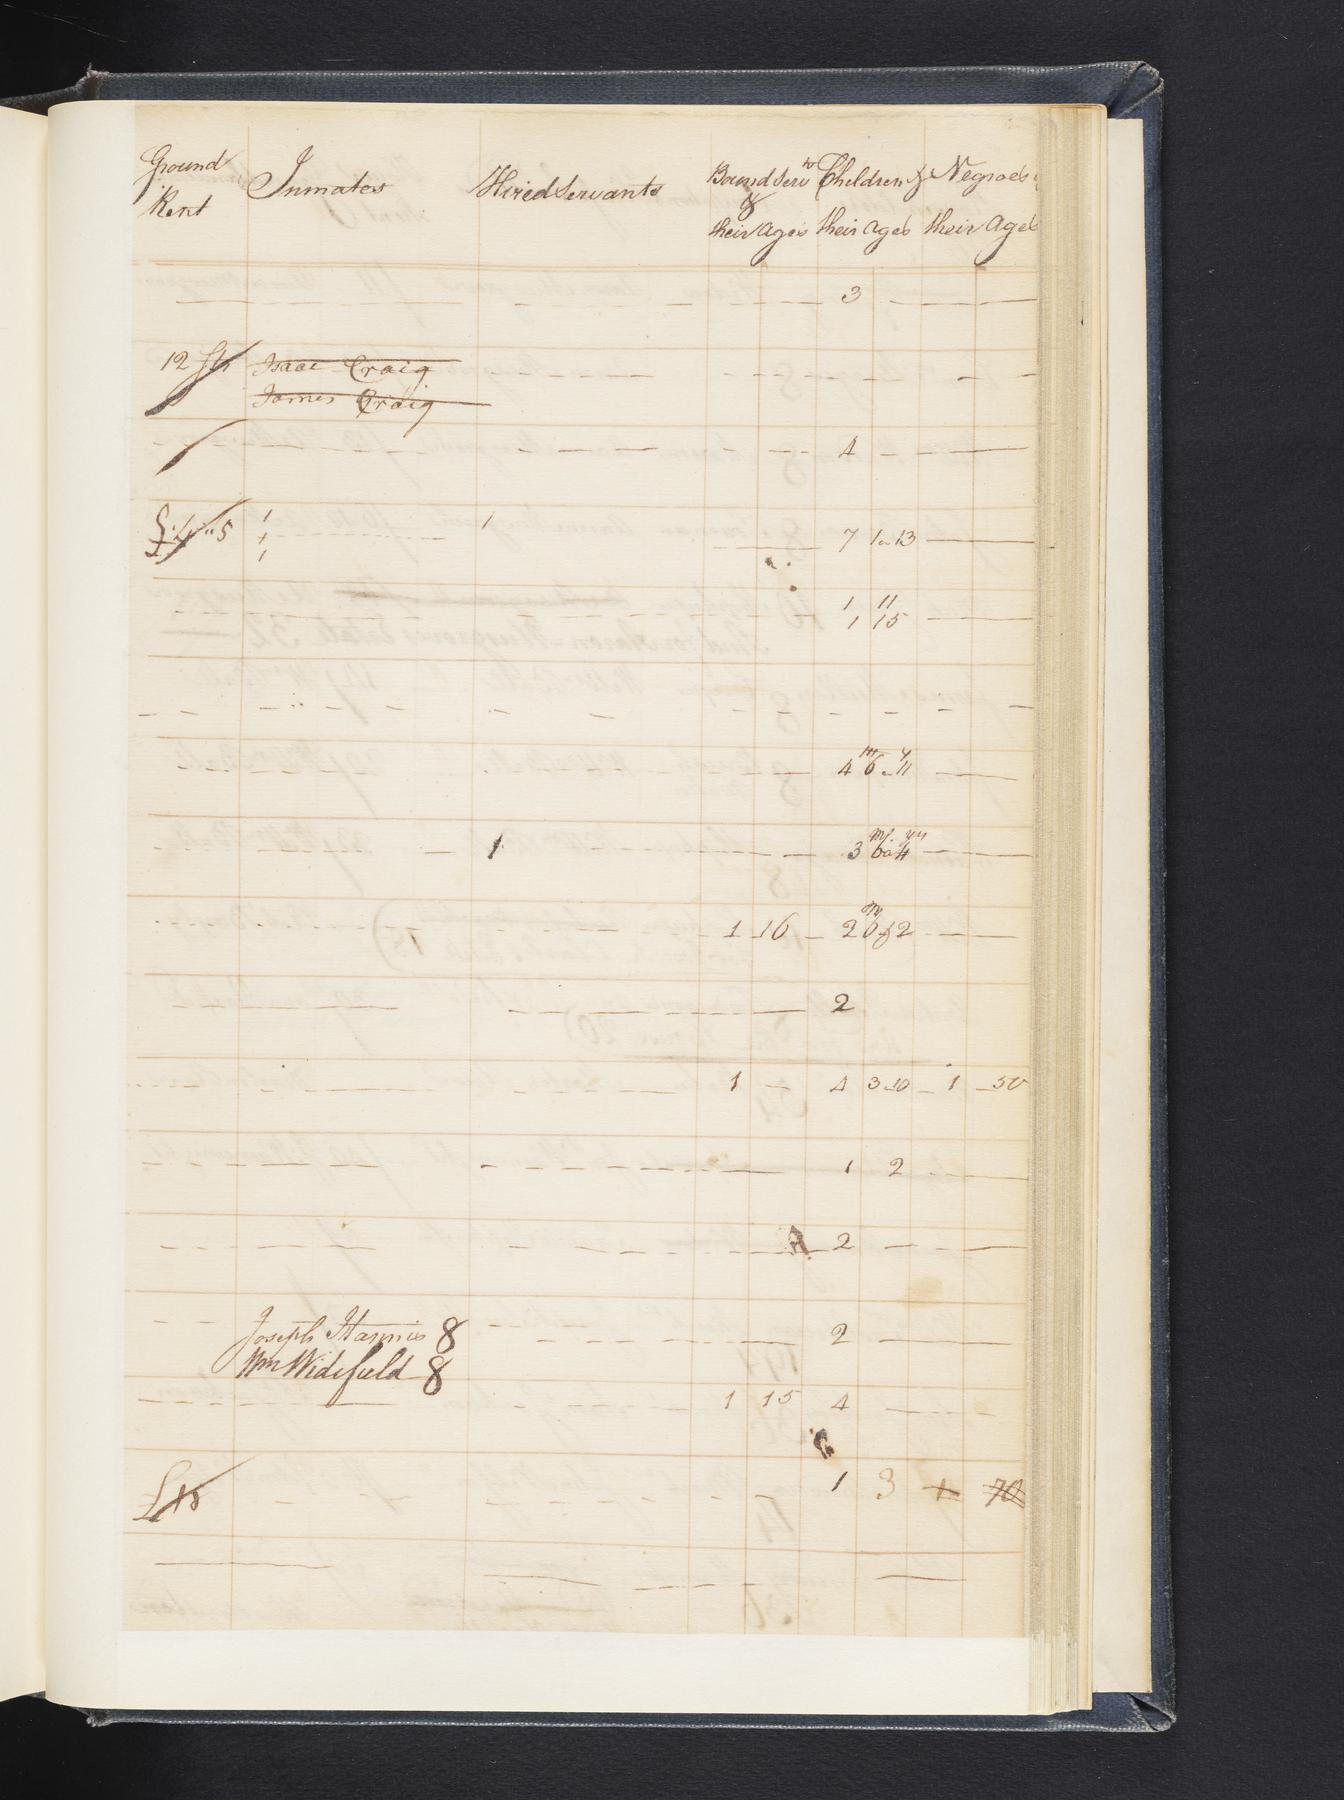 Ground Rent
Inmates
Hired Servants
Bound Serv ts & their Ages
Children & their ages
Negroes their Ages
3
12
Isaac Craig
James Craig
4
5 1 1 7 1 a 13
1
1
1 11
1 15
m y
4 6 a 11
1 3 6 a 4
1 16 2 6 & 2
2
1 4 3 10 1 50
1 2
2
Joseph 8 2
Wm Widifield 8
1 15 4
1 3 1 70